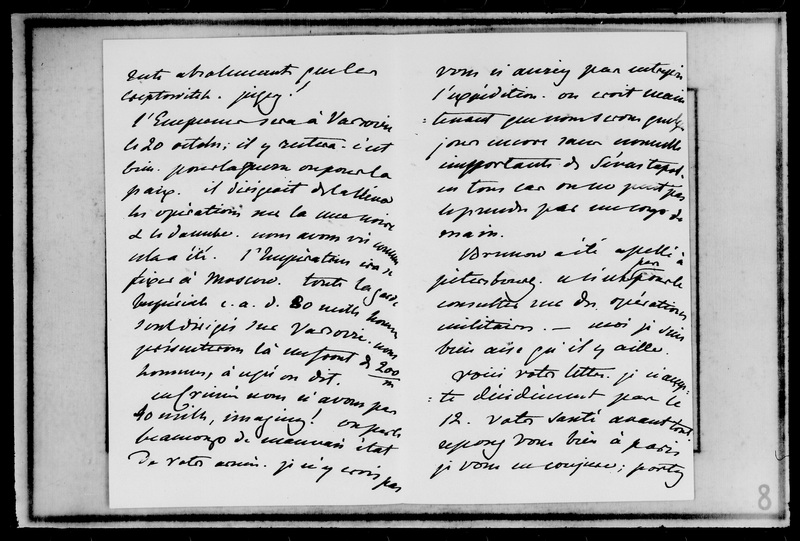 rente absolument que les
jugez!
l'Empereur sera à Varsovie
le 20 octobre; il y restera. c'est
bien. pour la guerre ou pour la
paix. il dirigeait de là même
les opérations sur la mer noire
& le Danube. nous avons vu comme
cela a été. l'Impératrice ira se
fixer à Moscow. toute la garde
Impériale c. a. d. 80 mille hommes
sont dirigés sur Varsovie. nous
présenterons là un front de 200
m
hommes, à ce qu'on dit.
en Crimée nous n'avons pas
40 mille, imaginez! on parle
beaucoup de mauvais état
de votre armée. je n'y crois pas
vous n'auriez pas entrepris
l'expédition. on croit main
:tenant que nous serons quelq.
jours encore sans nouvelle
importante de Sévastopol.
en tous cas on ne peut pas
le prendre par un coup de
main.
Brunnow a été appellé à
pétersbourg. ce n'est pas pour le
consulter sur des opérations
militaires. — moi je suis
bien aise qu'il y aille.
voici votre lettre. je n'accep:
:te décidément pas le
12. votre santé avant tout.
reposez vous bien à paris
je vous en conjure; portez
8